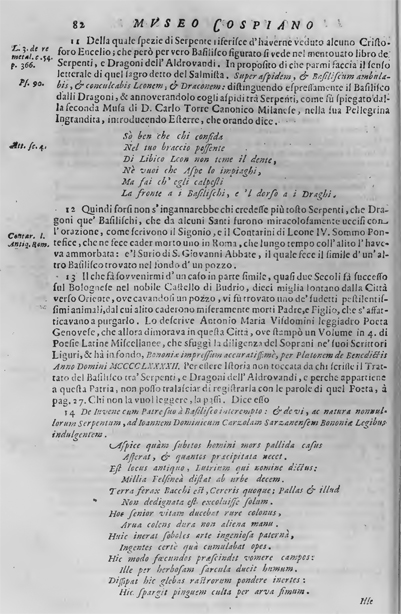 82 MVSEO COSPIANO
11 Della quale spezie di Serpente riferisce d'haverne veduto alcuno Cristo-
L. 3. de re
foro Encelio; che però per vero Basilisco figurato si vede nel mentouato libro de
metal. c. 54.
Serpenti, e Dragoni dell'Aldrovandi. In proposito di che parmi faccia il senso
p. 366.
letterale di quel sagro detto del Salmista. Super aspidem, & Basiliscum ambula-
Ps. 90.
bis, & conculcabis Leonem, & Draconem: distinguendo espressamente il Basilisco
dalli Dragoni, & annoverandolo cogli aspidi trà Serpenti, come fù spiegato dal-
la seconda Musa di D. Carlo Torre Canonico Milanese, nella sua Pellegrina
Ingrandita, introducendo Esterre, che orando dice.
Sò ben che chi confida
Att. sc. 4.
Nel tuo braccio possente
Di Libico Leon non teme il dente,
Nè vuoi che Aspe lo impiaghi,
Ma fai ch' egli calpesti
La fronte a i Basilischi, e 'l dorso a i Draghi.
12 Quindi forsi non s'ingannarebbe chi credesse più tosto Serpenti, che Dra-
goni que' Basilischi, che da alcuni Santi furono miracolosamente uccisi con-
l'orazione, come scrivono il Sigonio, e il Contarini di Leone IV. Sommo Pon-
Contar. l.
tefice, che ne fece cader morto uno in Roma, che lungo tempo coll'alito l'have-
Antiq. Rom.
va ammorbata: e 'l Surio di S. Giovanni Abbate, il quale fece il simile d'un'al-
tro Basilisco trovato nel fondo d'un pozzo.
13 Il che fà sovvenirmi d'un caso in parte simile, quasi due Secoli fà successo
sul Bolognese nel nobile Castello di Budrio, dieci miglia lontano dalla Città
verso Oriente, ove cavandosi un pozzo, vi fù trovato uno de' sudetti pestilentis-
simi animali, dal cui alito caderono miseramente morti Padre, e Figlio, che s'af-
faticavano a purgarlo. Lo descrive Antonio Maria Visdomini leggiadro Poeta
Genovese, che allora dimorava in questa Città, ove stampò un Volume in 4. di
Poesie Latine Miscellanee, che sfuggì la diligenza del Soprani ne' suoi Scrittori
Liguri, & hà in fondo, Bononiæ impressum accuratissimè, per Platonem de Benedictis
Anno Domini MCCCCLXXXXII. Per essere Istoria non toccata da chi scrisse il Trat-
tato del Basilisco trà Serpenti, e Dragoni dell'Aldrovandi, e perche appartiene
a questa Patria, non posso tralasciar di registrarla con le parole di quel Poeta, à
pag. 27. Chi non la vuol leggere, la passi. Dice esso
14 De Iuvene cum Patre suo à Basilisco interempto: & de vi, ac natura nonnul-
lorum Serpentum, ad Ioannem Dominicum Sarzanensem Bononiæ Legibus
indulgentem.
Aspice quàm subitos homini mors pallida casus
Afferat, & quantos præcipitata necet.
Est locus antiquo, Butrium qui nomine dictus:
Millia Felsineâ distat ab urbe decem.
Terra ferax Bacchi est, Cereris quoque; Pallas & illud
Non dedignata est excoluisse solum.
Hoc senior vitam ducebat rure colonus,
Arua colens dura non aliena manu.
Huic inerat soboles arte ingeniosa paternâ,
Ingentes certè quæ cumulabat opes.
Hic modo fæcundos præscindit vomere campos:
Ille per herbosam sarcula ducit humum.
Dissipat hic glebas rastrorum pondere inertes:
Hic spargit pinguem culta per arva fimum.
Ille